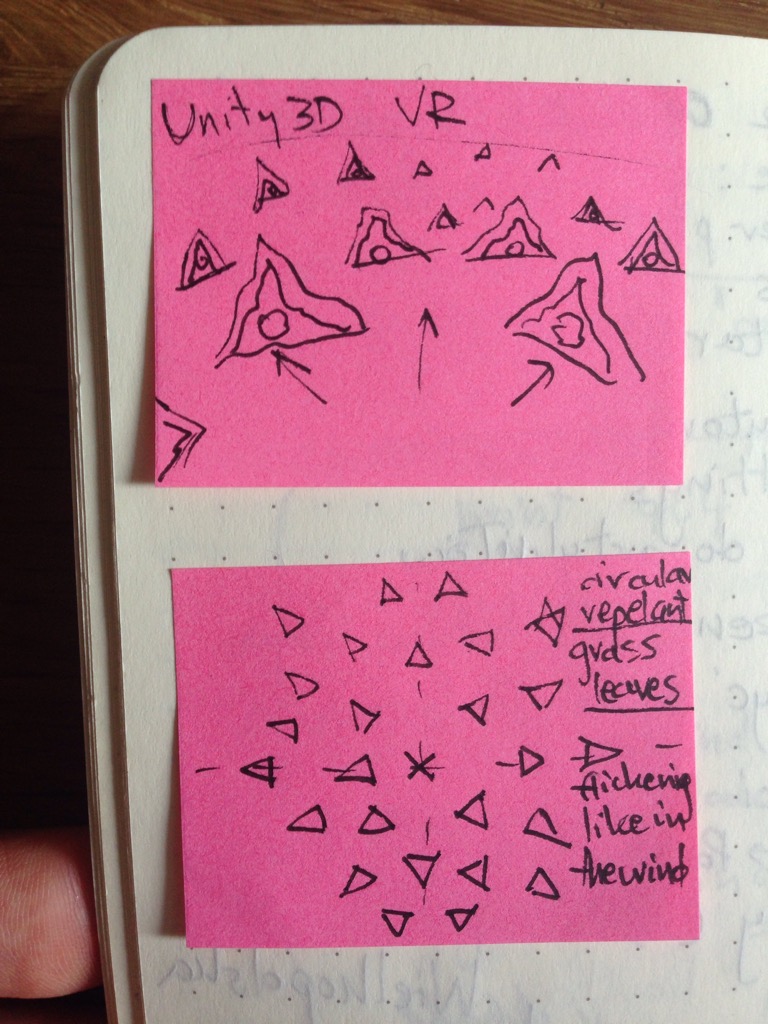 Unity3D VR
circular
repelant
grass
leaves
flickering
like in
the wind